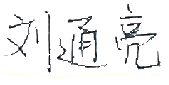 刘通亮